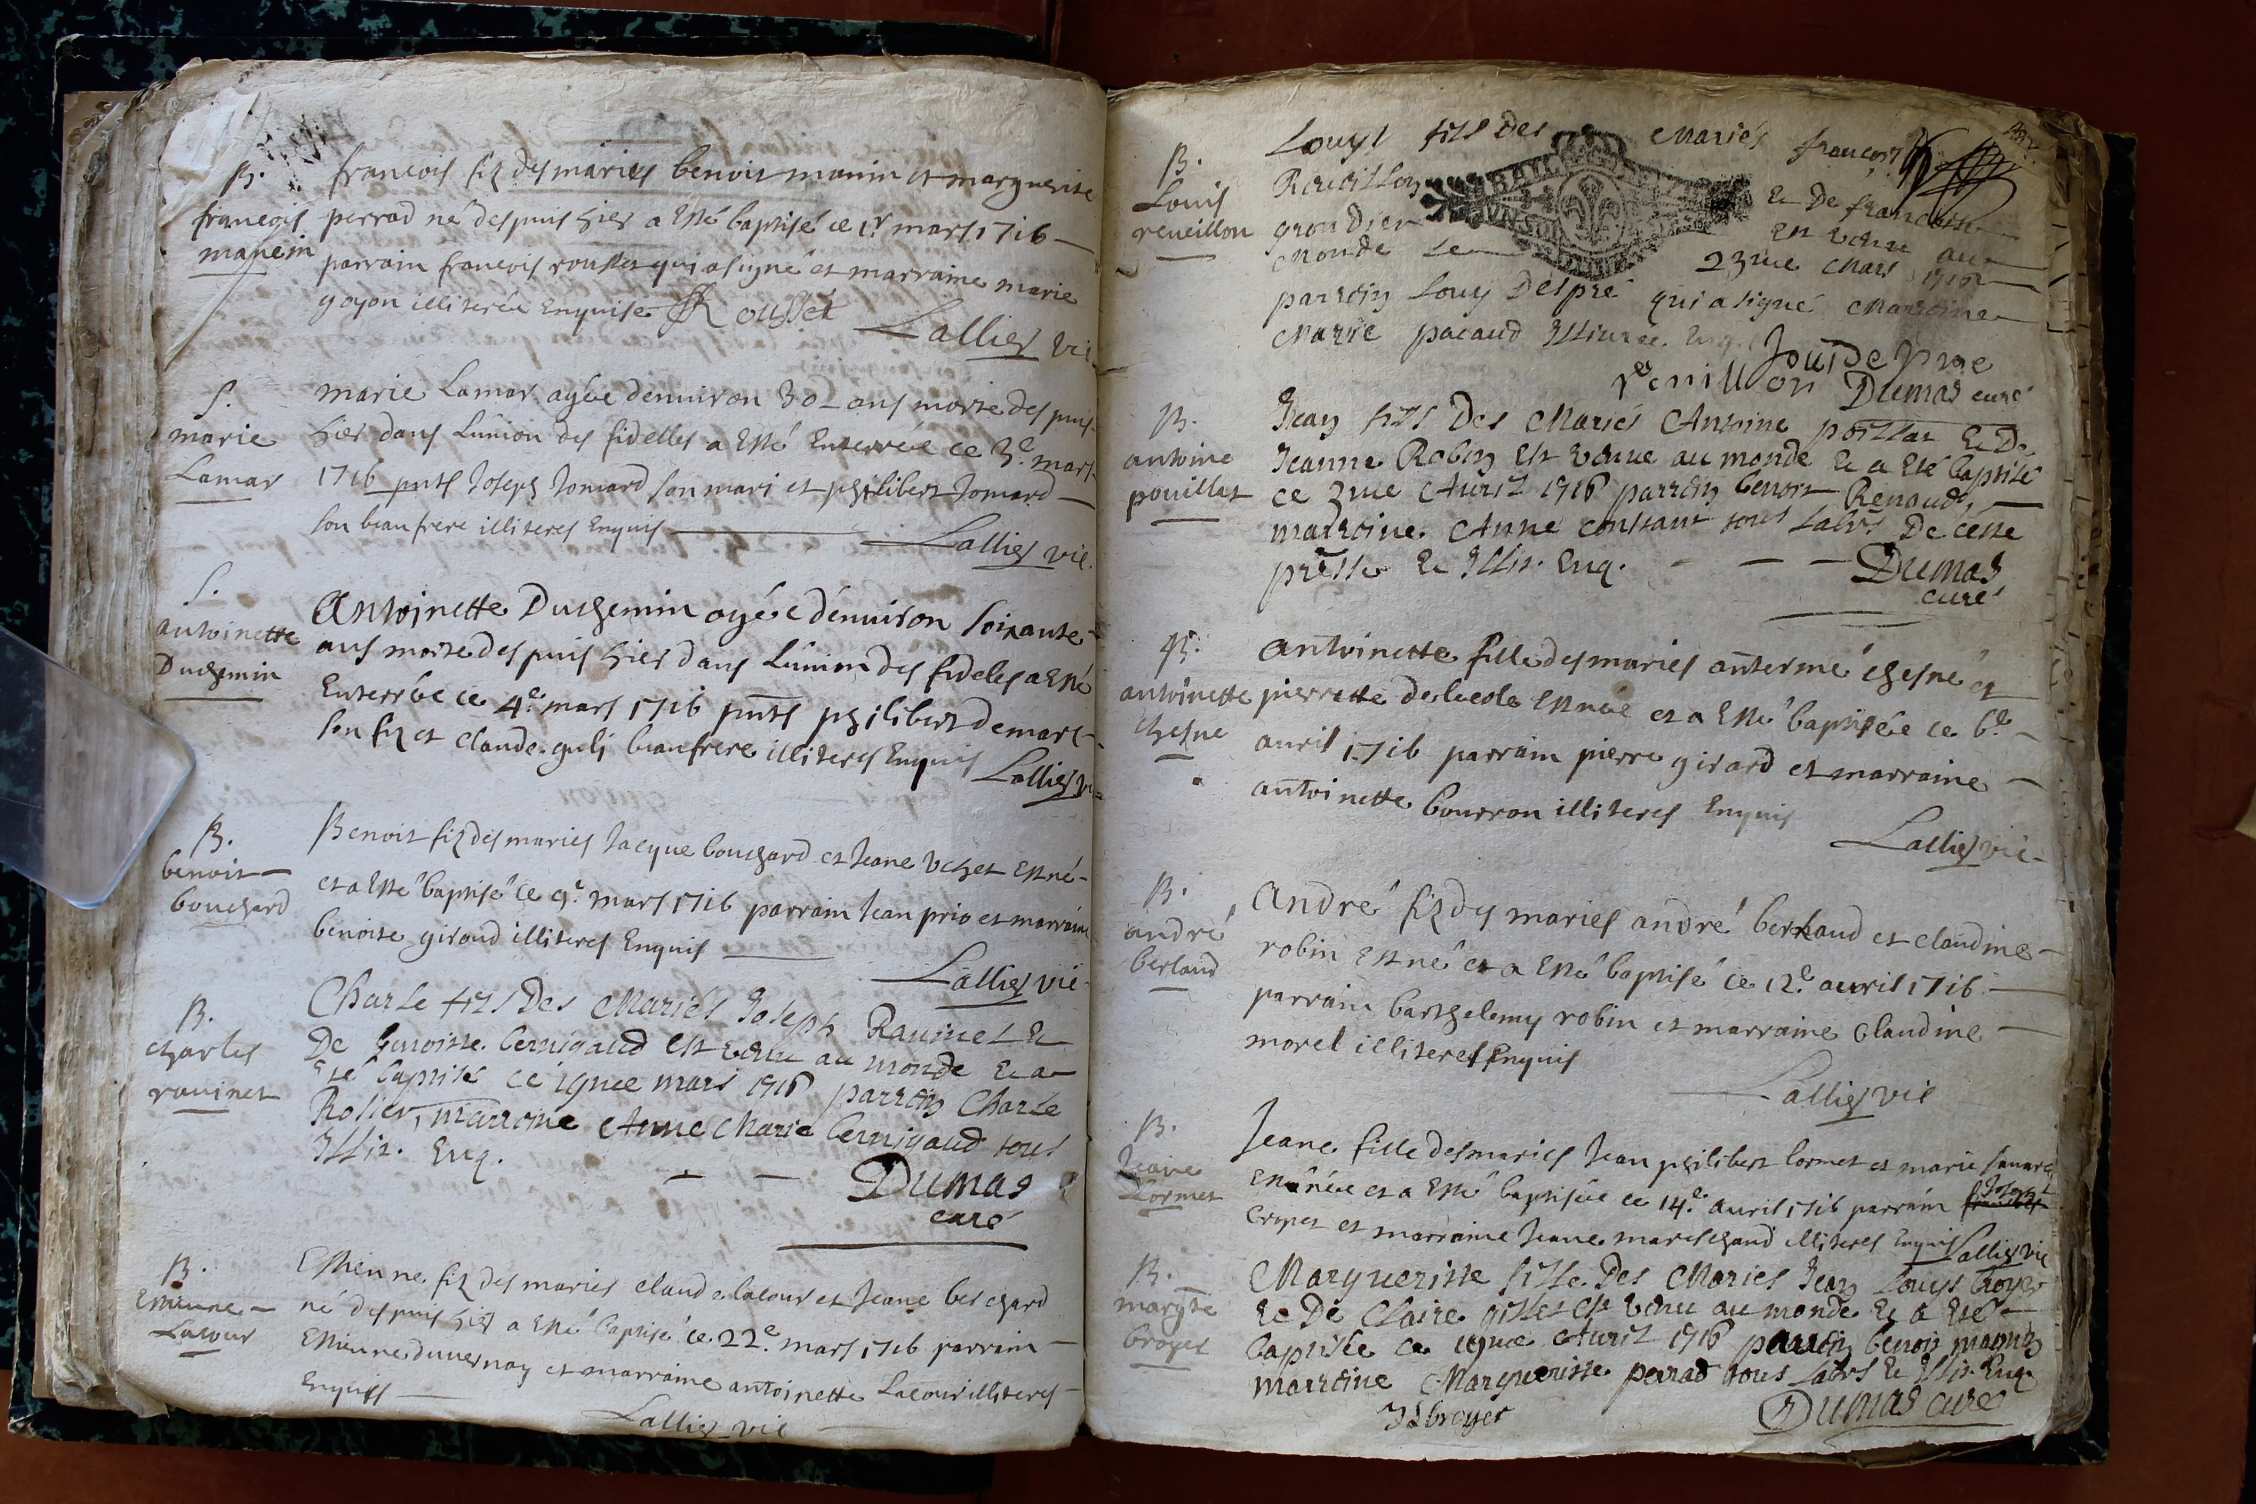 B.
francois
manein
francois fiz des mariés benoit manin et marguerite
perrad né despuis hier a esté baptisé ce 1r mars 1716
parrain francois rousset qui a signé et marraine marie
goyon illiterée Enquise f Rousset
Lallier vic.
S.
marie
Lamar
marie Lamar agée denuiron 30 ans morte des puis
hier dans Lunion des fidelles a esté Enterrée ce 3e mars
1716 pnts Joseph Jomard son mari et philibert Jomard
son beaufrere illiteres Enquis
Lallier vic.
S.
antoinette
Duchemin
Antoinette Duchemin agée denuiron soixante
ans morte despuis hier dans Lunion des fideles a esté
Enterrée ce 4e mars 1716 pnts philibert demare
son fiz et claude guli beaufrere illiteres Enquis
Lallier vic
B.
benoit
bouchard
Benoit fiz des mariés Jacque bouchard et Jeane vchet Est né
et a esté baptisé ce 9e mars 1716 parrain Jean prio et marraine
benoite giroud illiteres Enquis
Lallier vic
B.
charles
rauinet
Charle fils Des Mariés Joseph Rauinet &
De benoitte bernigaud est venu au monde & a
eté baptisé ce 19me mars 1716 parrein Charle
Rolier, marreine Anne Marie bernigaud tous
Illit. Enq.
Dumas
curé
B.
Estienne
Lacour
Estienne fiz des mariés claude lacour et Jeane berchard
né despuis hier a esté baptisé ce 22e mars 1716 parrain
Estienne duuernay et marraine antoinette Lacour illiteres
Enquis
Lallier vic
B.
Louis
reueillon
Louys fils des Mariés francois
Reueillon & De francoise
grondier est venu au
Monde le 23me Mars 1716
parrein Louys Despré qui a signé Marreine
Marie pacaud Illiterée Enq.
reuillon
Dumas curé
B.
antoine
pouillat
Jean fils Des Mariés Antoine poillat & De
Jeanne Robin est venue au monde & a eté baptisé
ce 3me Auril 1716 parrein benoit Renaud,
marreine Anne constant tous Labrs De cette
prsse & Illit. Enq.
Dumas
curé
B.
antoinette
chesne
antoinette fille des mariés antermé chesne et
pierrette delecole est née et a esté baptisée ce 6e
auril 1716 parrain pierre girard et marraine
antoinette bourron illiteres Enquis
Lallier vic
B.
andré
berland
André fiz des mariés andré berland et claudine
robin est né et a esté baptisé ce 12e auril 1716
parrain barthelemy robin et marraine Claudine
morel illiteres Enquis
Lallier vic
B.
Jeane
Cormet
Jeane fille des mariés Jean philibert Cormet et marie
est née et a esté baptisée ce 14e auril 1716 parrain Joseph
cropet et marraine Jeane mareschaud illiteres Enquis Lallier vic
B.
margte
broyer
Margueritte fille Des Mariés Jean Louys broyer
& De Claire gillet est venue au monde & a eté
baptisée ce Auril 1716 parrein benoit manin
marreine Margueritte perrad tous Labrs & Illit. Enq.
broyer
Dumas curé